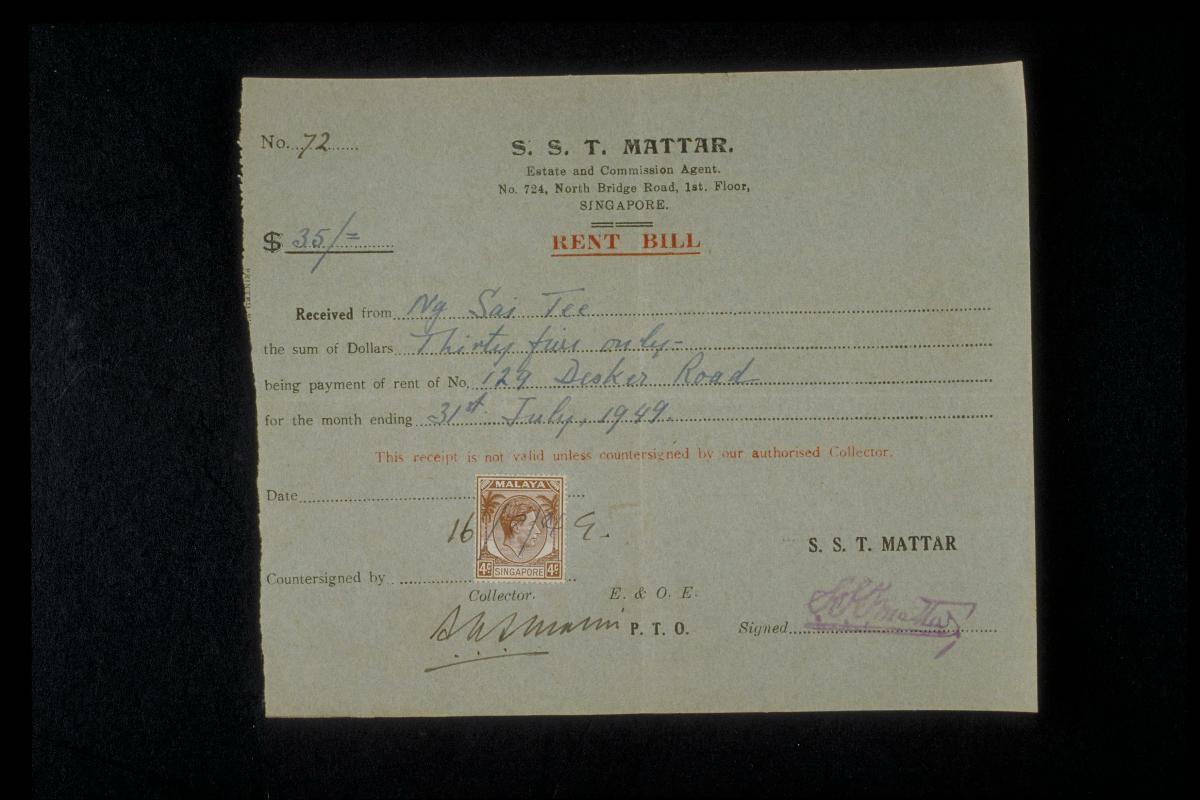 No. 72
S. S. T. MATTAR.
Estate and Commission Agent.
No. 724, North Bridge Road, 1st. Floor,
SINGAPORE.
$ 35/=
RENT BILL
Received from Ng Sai Tee
the sum of Dollars Thirty five only-
being payment of rent of No. 129 Desker Road
for the month ending 31st July, 1949.
This receipt is not valid unless countersigned by our authorised Collector.
Date
MALAYA
4c SINGAPORE 4c
S. S. T. MATTAR
Countersigned by
Collector.
E. & O. E.
P. T. O.
Signed S S T Mattar